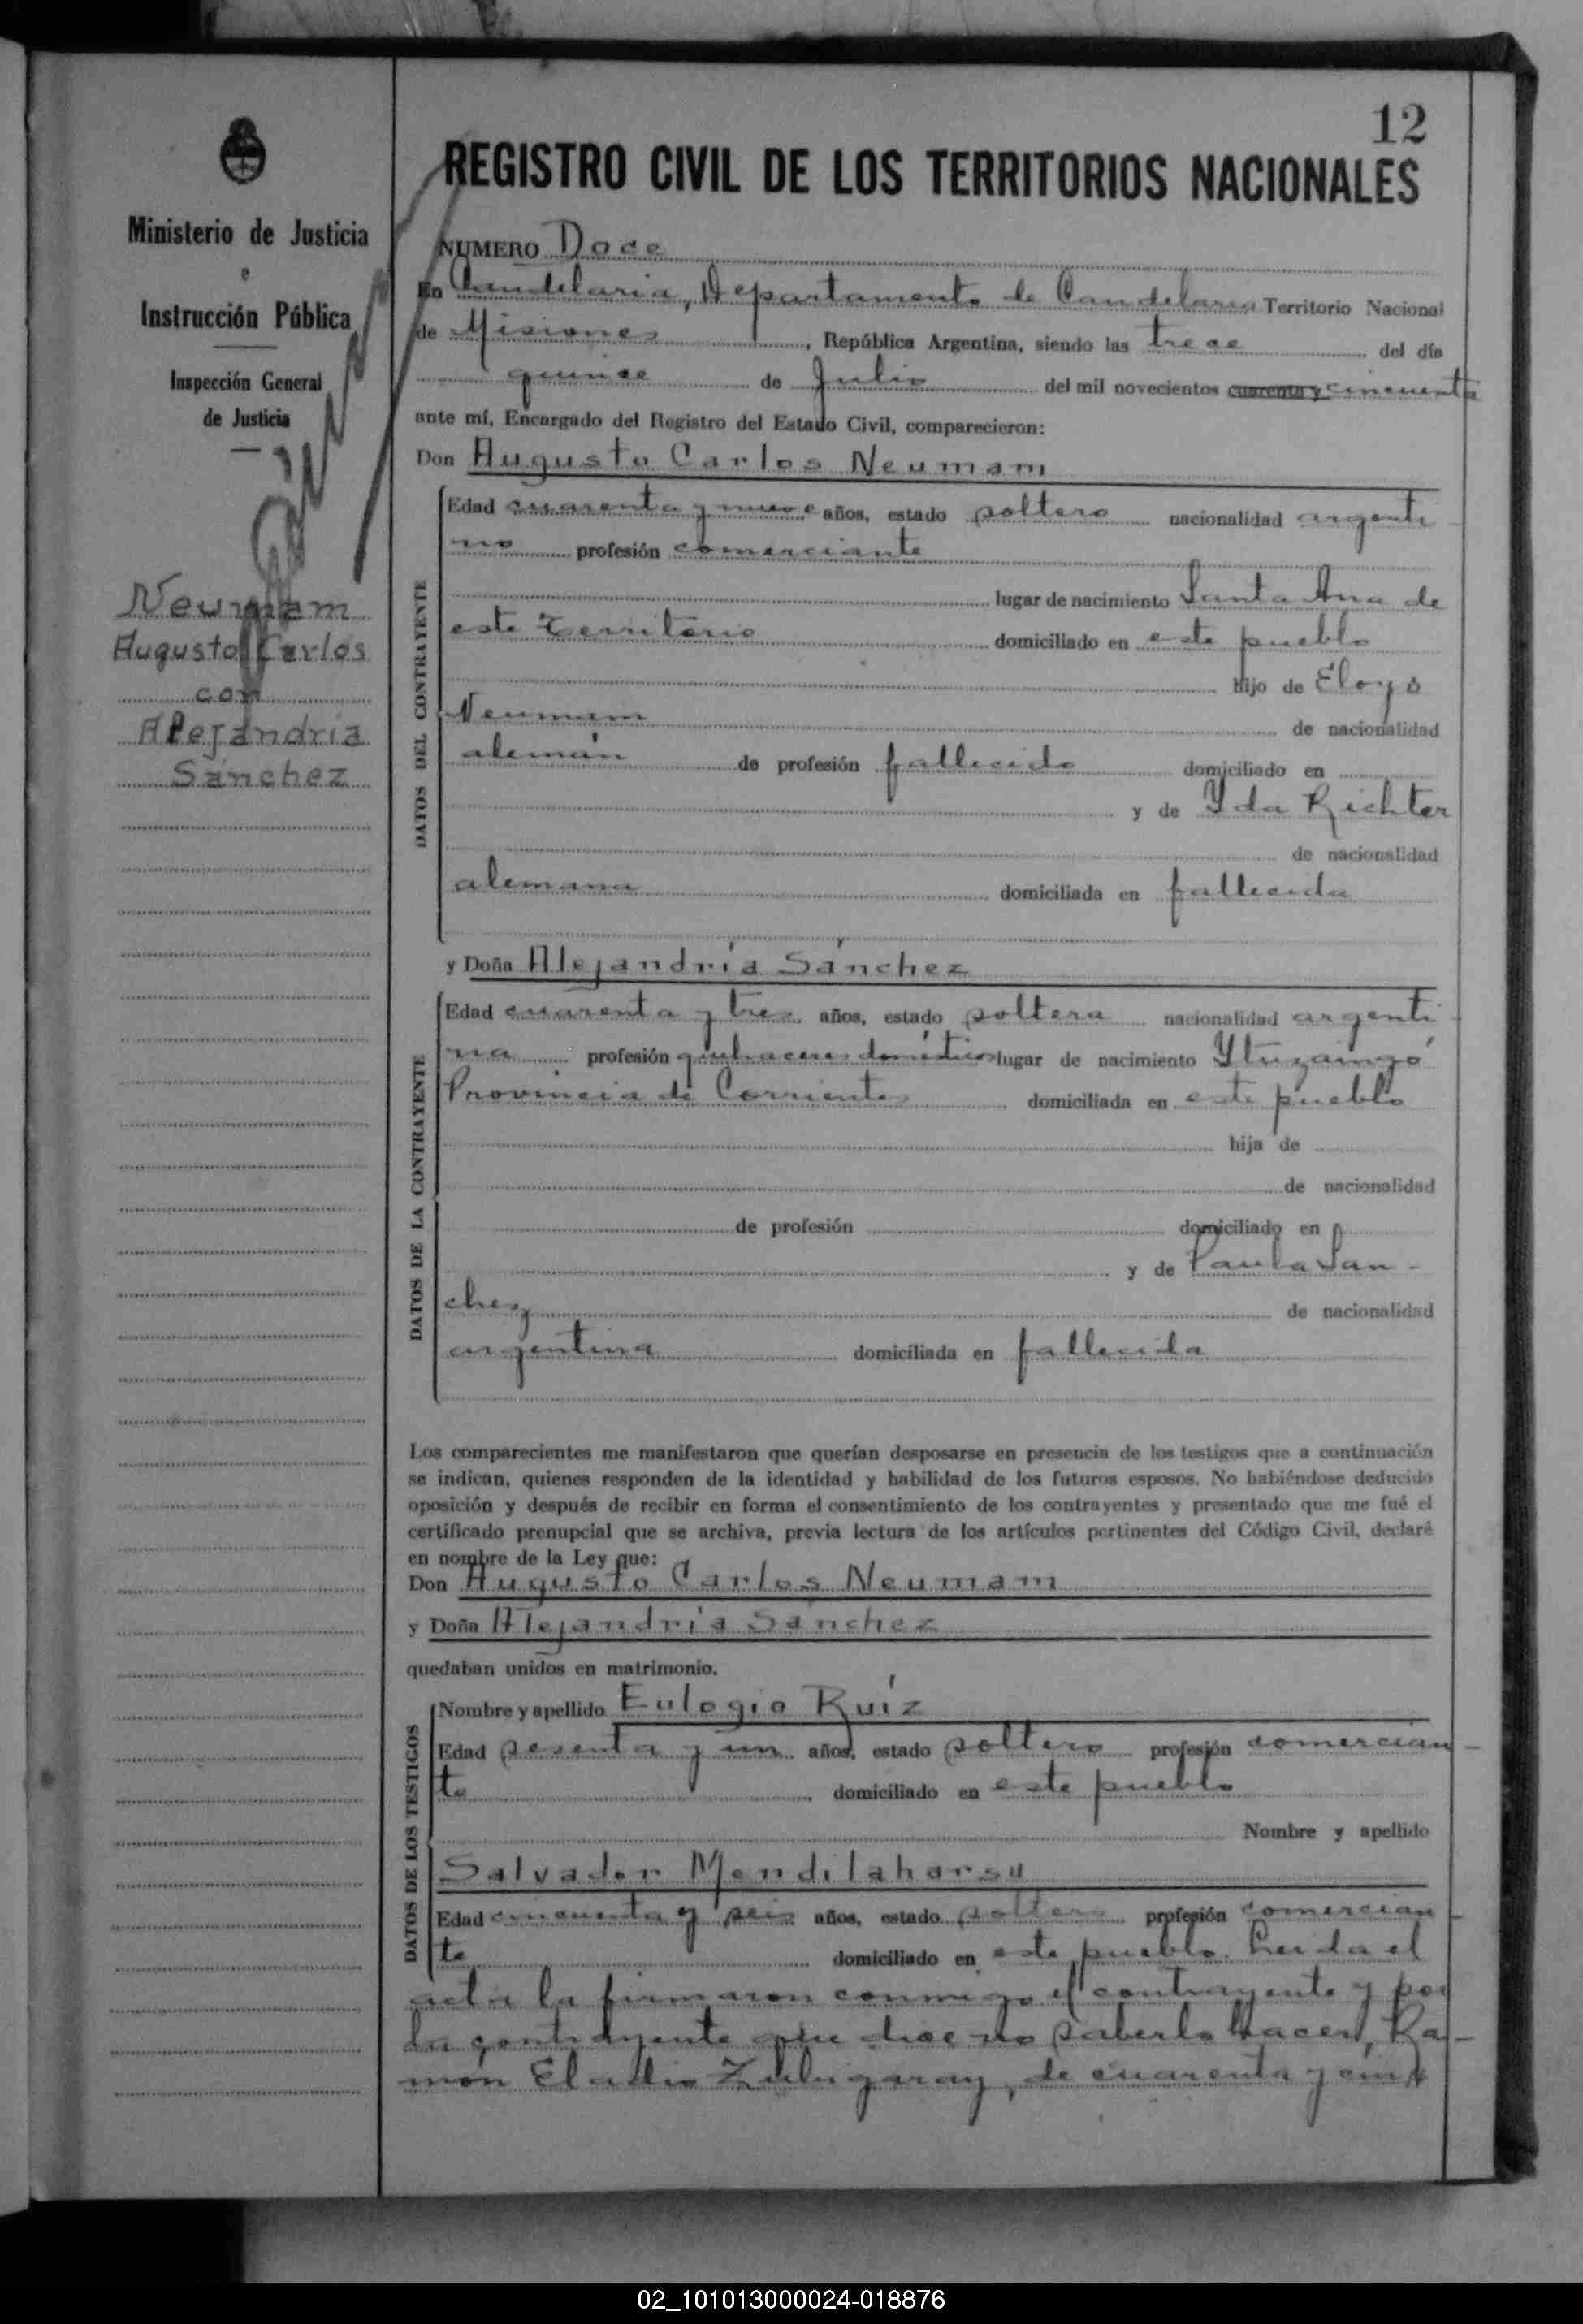 12
REGISTRO CIVIL DE LOS TERRITORIOS NACIONALES
Ministerio de Justicia
e
Instrucción Pública
Inspección General
de Justicia
Neumam
Augusto Carlos
con
Alejandría
Sánchez
NUMERO Doce
En Candelaria, Departamento de Candelaria Territorio Nacional
de Misiones, República Argentina, siendo las trece del día
quince de Julio del mil novecientos cuarenta y cincuenta
ante mí, Encargado del Registro del Estado Civil, comparecieron:
Don Augusto Carlos Neumam
DATOS DEL CONTRAYENTE
Edad cuarenta y nueve años, estado soltero nacionalidad argenti-
no profesión comerciante
lugar de nacimiento Santa Ana de
este Territorio domiciliado en este pueblo
hijo de Eloyo
Neumam de nacionalidad
alemán de profesión fallecido domiciliado en
y de Yda Richter
de nacionalidad
alemana domiciliada en fallecida
y Doña Alejandría Sánchez
DATOS DE LA CONTRAYENTE
Edad cuarenta y tres años, estado soltera nacionalidad argenti-
na profesión quehaceres domésticos lugar de nacimiento Ytuzaingó
Provincia de Corrientes domiciliada en este pueblo
hija de
de nacionalidad
de profesión domiciliado en
y de Paula San-
chez de nacionalidad
argentina domiciliada en fallecida
Los comparecientes me manifestaron que querían desposarse en presencia de los testigos que a continuación
se indican, quienes responden de la identidad y habilidad de los futuros esposos. No habiéndose deducido
oposición y después de recibir en forma el consentimiento de los contrayentes y presentado que me fué el
certificado prenupcial que se archiva, previa lectura de los artículos pertinentes del Código Civil, declaré
en nombre de la Ley que:
Don Augusto Carlos Neumam
y Doña Alejandría Sánchez
quedaban unidos en matrimonio.
DATOS DE LOS TESTIGOS
Nombre y apellido Eulogio Ruíz
Edad sesenta y un años, estado soltero profesión comercian-
te domiciliado en este pueblo
Nombre y apellido
Salvador Mendilaharsu
Edad cincuenta y seis años, estado soltero profesión comercian-
te domiciliado en este pueblo. Leida el
acta la firmaron conmigo el contrayente y por
la contrayente que dice no saberlo hacer, Ra-
món Eladio Zubigaray, de cuarenta y cin
02_101013000024-018876